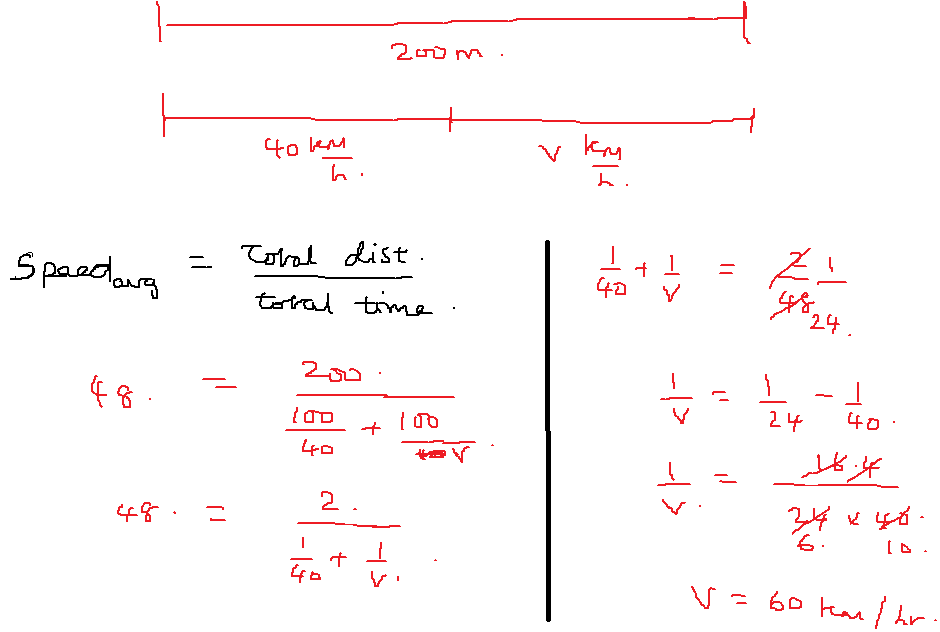 200m.
40 km/h. v km/h.
Speed avg = Total dist. / total time.
48. = 200. / (100/40 + 100/v).
48. = 2. / (1/40 + 1/v.).
1/40 + 1/v = 2/48 1/24.
1/v = 1/24 - 1/40.
1/v. = 16.4 / 24 x 40. 6. 10.
v = 60 km/hr.